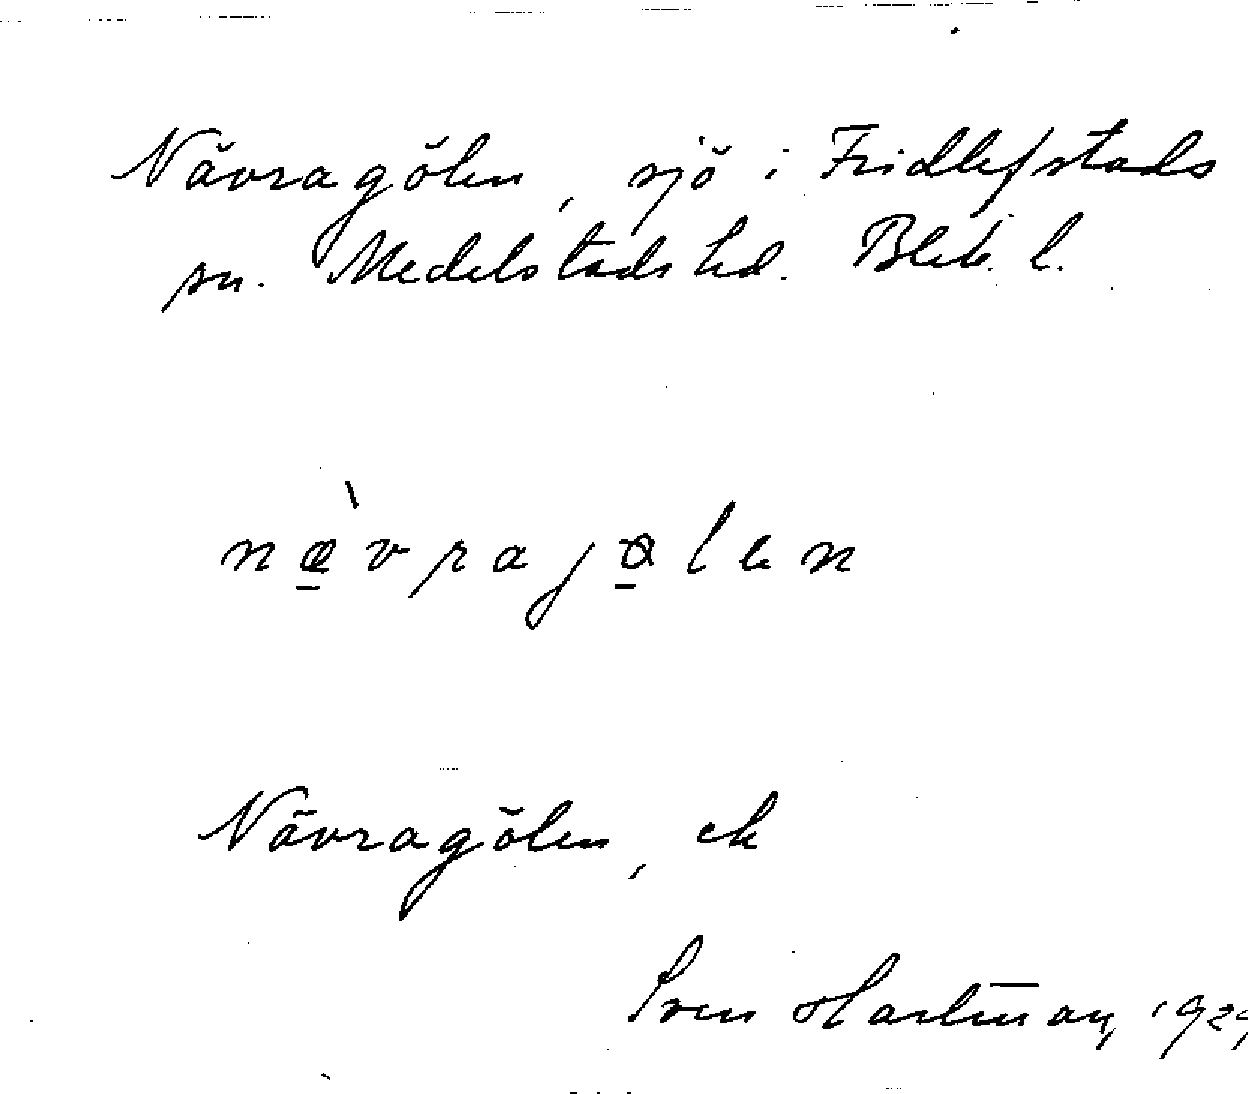 Nävragölen, sjö i Fridlefstads
sn. Medelstads hd. Blek. l.
nævrajølen
Nävragölen, ek
Sven Hartman, 1929